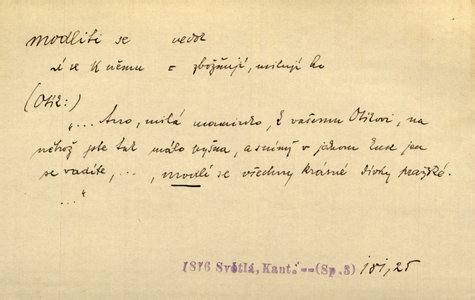 modliti se nedok
ní se k němu = zbožňují, milují ho
(Otík:)
"... Ano, milá maminko, k vašemu Otíkovi, na
něhož jste tak málo pyšna, a s nímž v jednom kuse jen
se vadíte, ..., modlí se všechny krásné dívky pražské.
..."
1876 Světlá, Kant. -- (Sp. 3) 181, 25